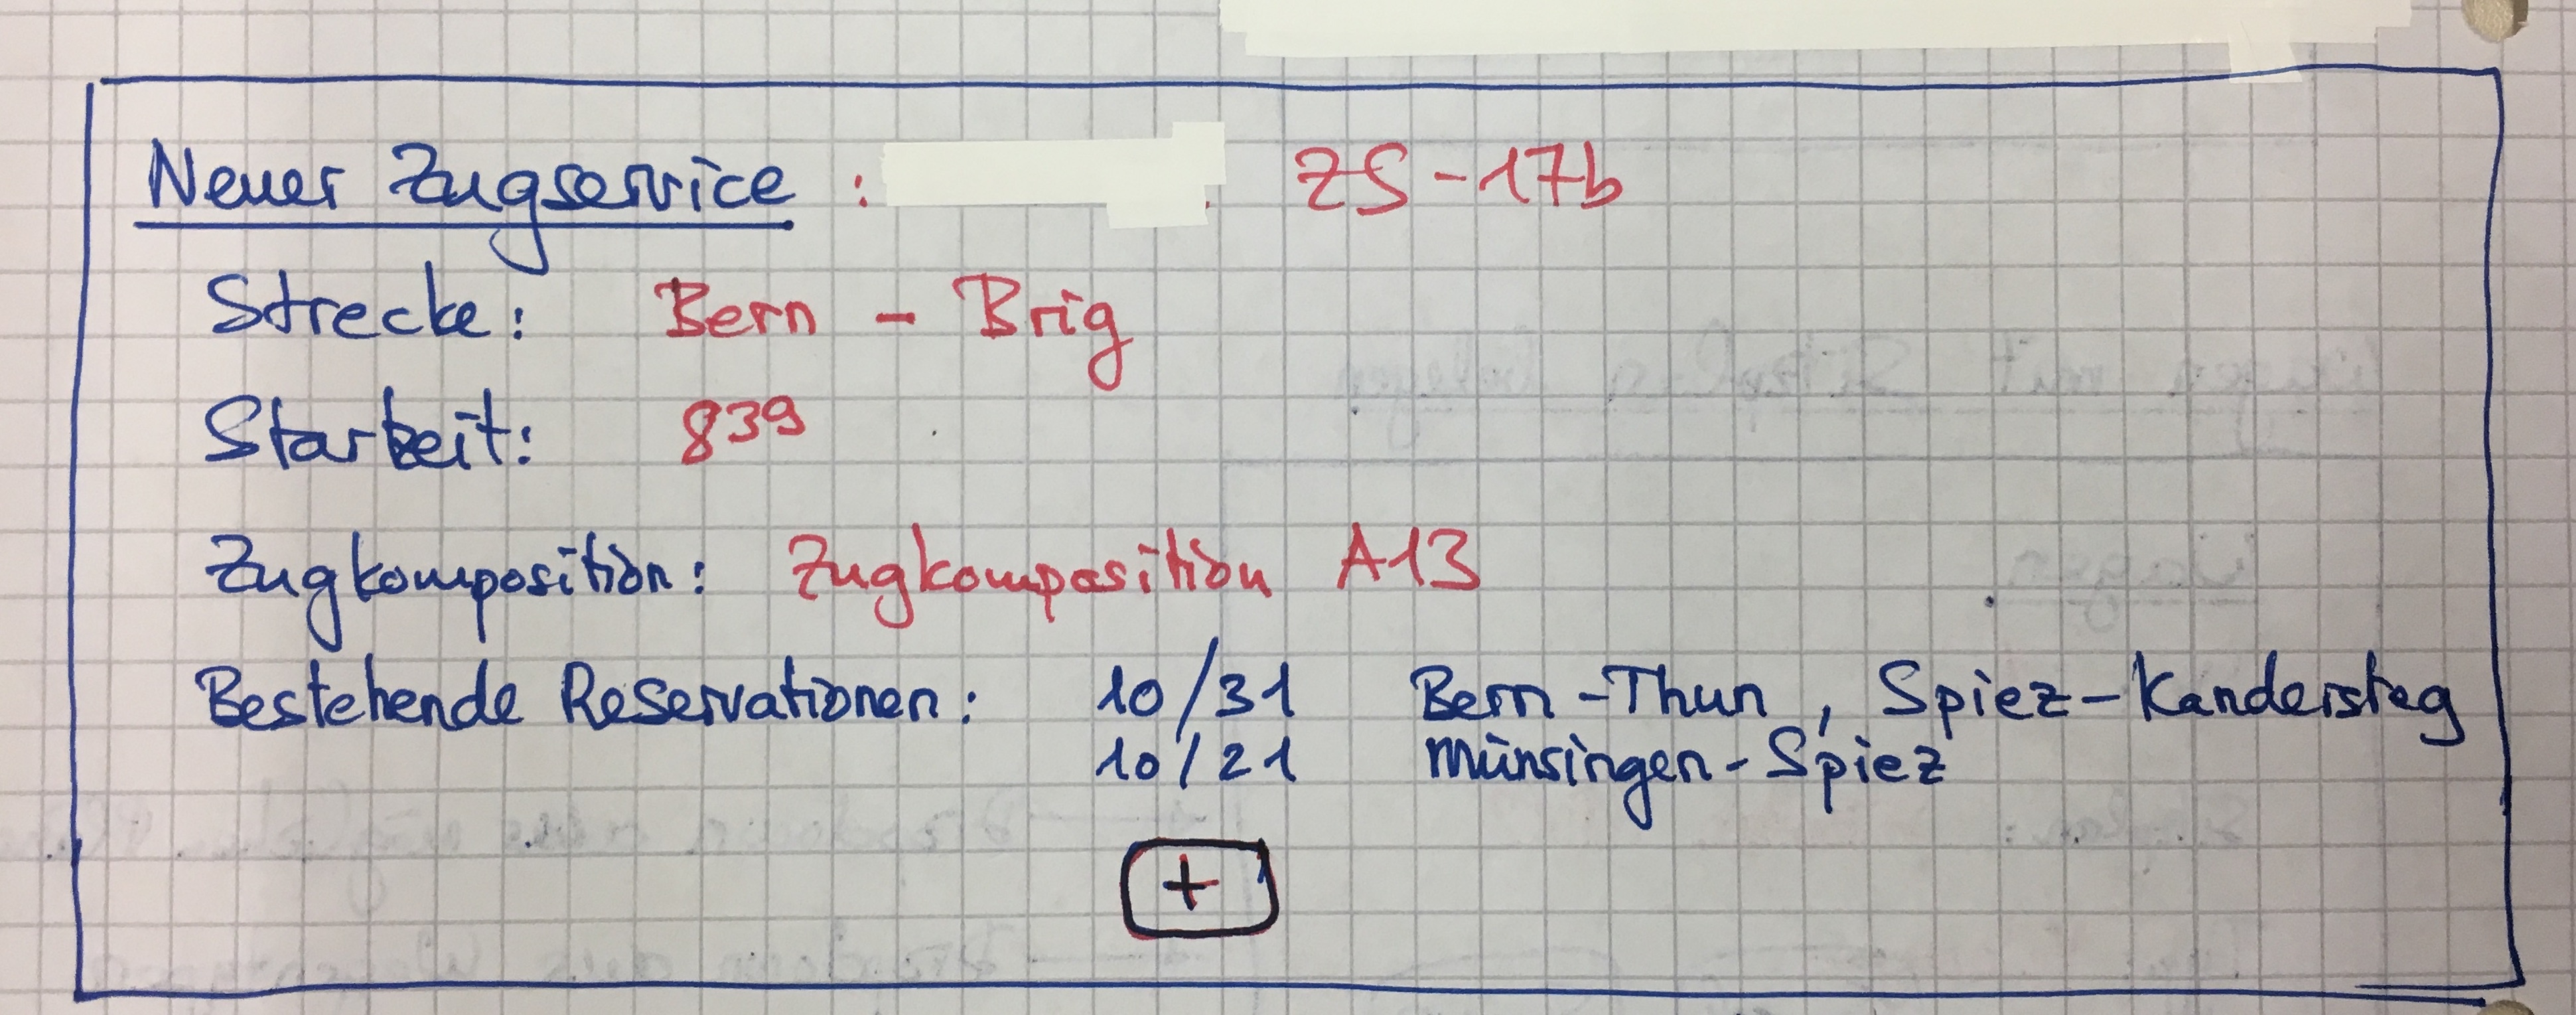 Neuer Zugservice : ZS-17b
Strecke: Bern - Brig
Startzeit: 8³⁹
Zugkomposition: Zugkomposition A13
Bestehende Reservationen: 10/31 Bern-Thun, Spiez-Kandersteg
10/21 Münsingen-Spiez
+